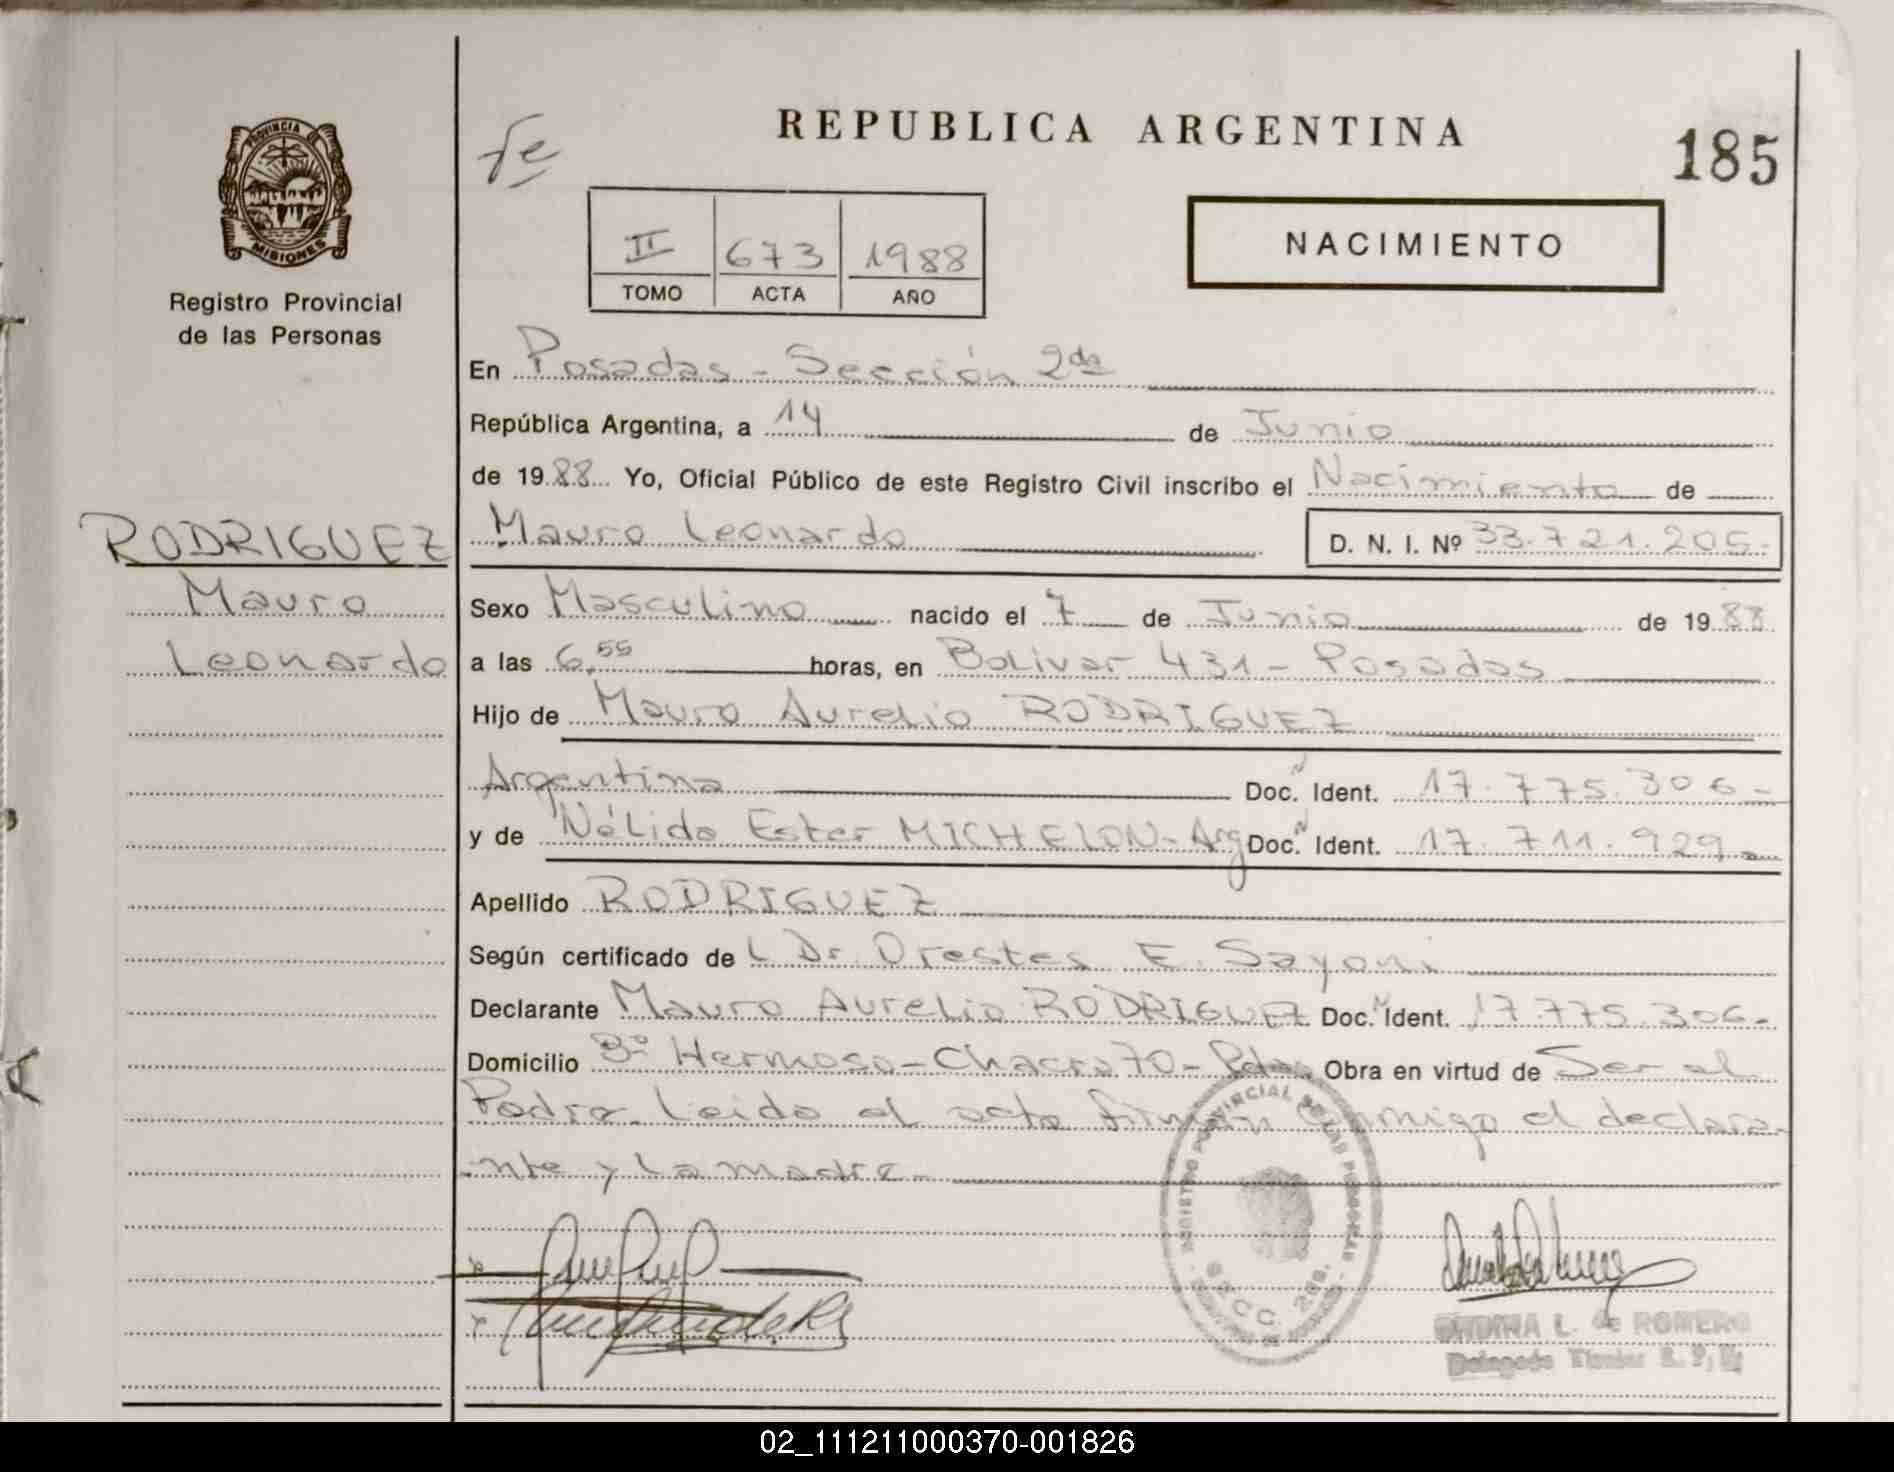 REPUBLICA ARGENTINA
185
PROVINCIA
MISIONES
Registro Provincial
de las Personas
II 673 1988
TOMO ACTA AÑO
NACIMIENTO
En Posadas - Sección 2da
República Argentina, a 14 de Junio
de 1988 Yo, Oficial Público de este Registro Civil inscribo el Nacimiento de
RODRIGUEZ
Mauro
Leonardo
Mauro Leonardo D. N. I. Nº 33.721.205-
Sexo Masculino nacido el 7 de Junio de 1988
a las 6,55 horas, en Bolivar 431 - Posadas
Hijo de Mauro Aurelio RODRIGUEZ
Argentina Doc. N Ident. 17.775.306-
y de Nélida Ester MICHELON - Arg Doc. N Ident. 17.711.929-
Apellido RODRIGUEZ
Según certificado de L Dr. Orestes E. Sayoni
Declarante Mauro Aurelio RODRIGUEZ Doc. N Ident. 17.775.306-
Domicilio Bº Hermoso - Chacra 70 - Pdas Obra en virtud de Ser el
Padre. Leido el acta firman conmigo el declara-
nte y La madre-
REGISTRO PROVINCIAL DE LAS PERSONAS
ONDINA L. de ROMERO
Delegada Titular R. P.
02_111211000370-001826